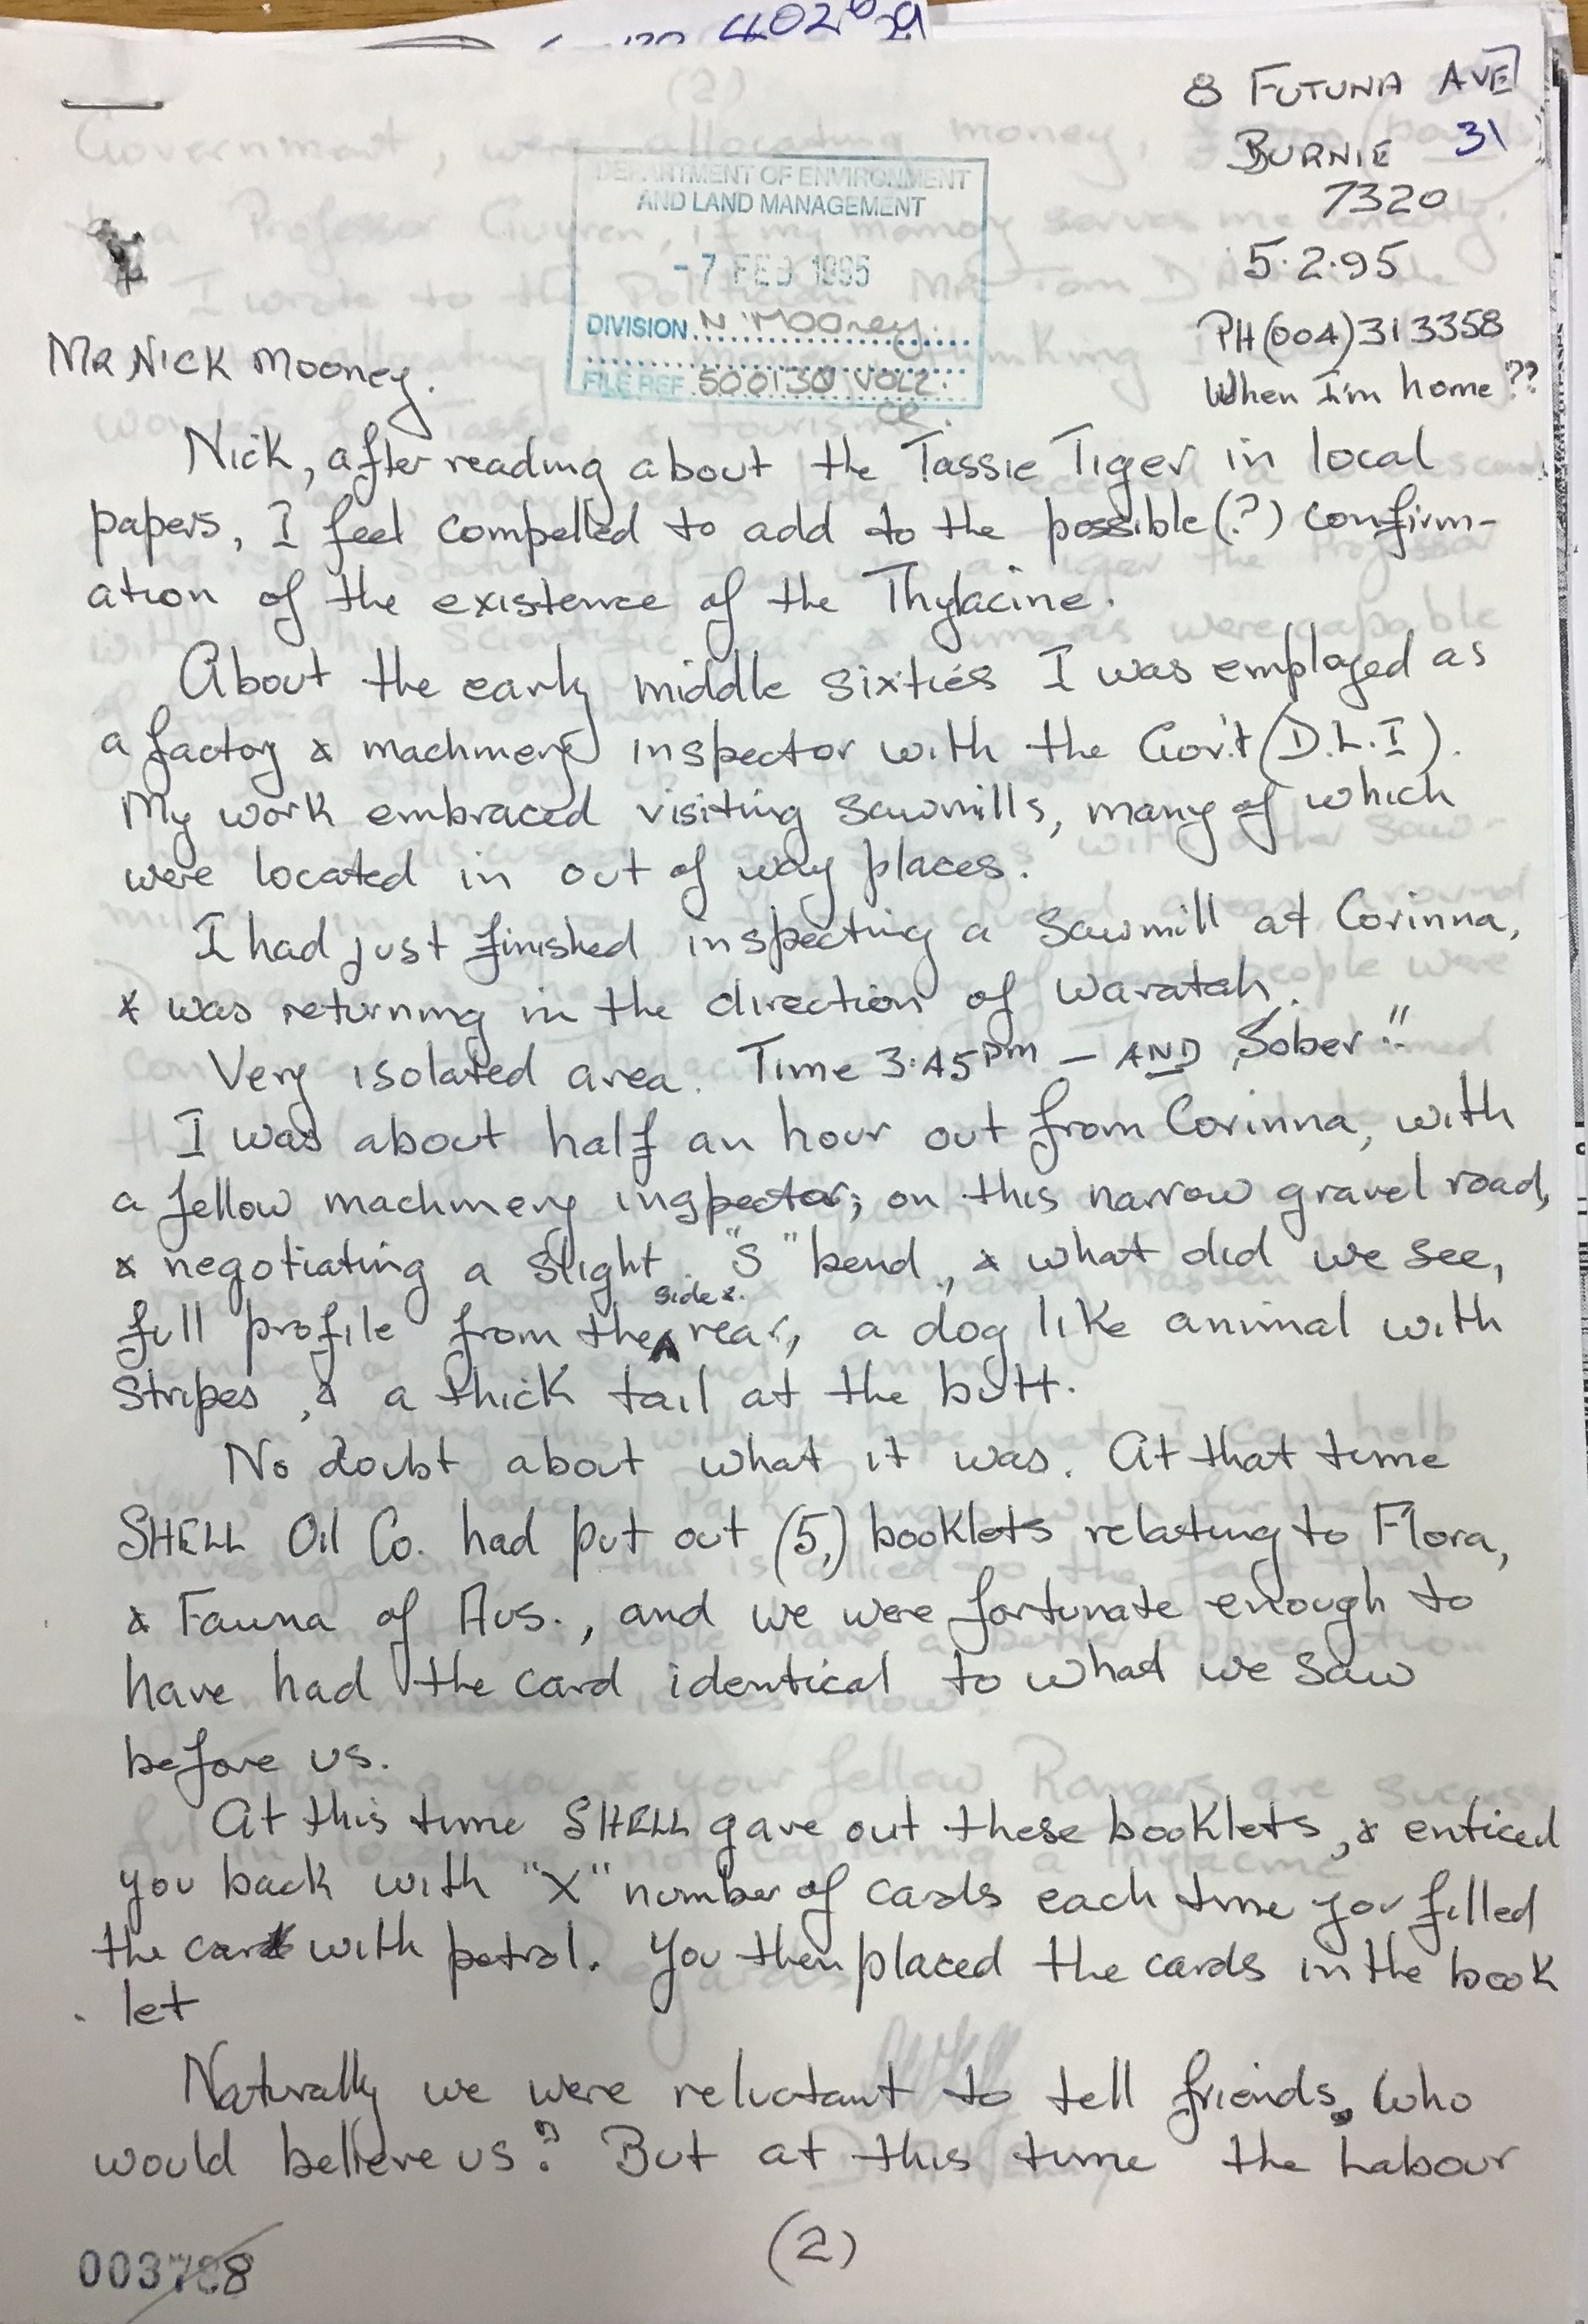 8 FUTUNA AVE
BURNIE 31
7320
5.2.95
PH (004) 313358
When I'm home ??
DEPARTMENT OF ENVIRONMENT
AND LAND MANAGEMENT
- 7 FEB 1995
DIVISION N. Mooney.
FILE REF. 500130 VOL2.
MR NICK MOONEY.
Nick, after reading about the Tassie Tiger in local
papers, I feel compelled to add to the possible (?) confirm-
ation of the existence of the Thylacine.
About the early middle sixties I was employed as
a factory & machinery inspector with the Gov't (D.L.I).
My work embraced visiting sawmills, many of which
were located in out of way places.
I had just finished inspecting a sawmill at Corinna,
& was returning in the direction of Waratah.
Very isolated area. Time 3:45pm – AND Sober!!
I was about half an hour out from Corinna, with
a fellow machinery inspector; on this narrow gravel road,
& negotiating a slight "S" bend, & what did we see,
full profile from the side & rear, a dog like animal with
stripes, & a thick tail at the butt.
No doubt about what it was. At that time
SHELL Oil Co. had put out (5,) booklets relating to Flora,
& Fauna of Aus., and we were fortunate enough to
have had the card identical to what we saw
before us.
At this time SHELL gave out these booklets, & enticed
you back with "X" number of cards each time you filled
the car with petrol. You then placed the cards in the book
let
Naturally we were reluctant to tell friends, who
would believe us? But at this time the Labour
(2)